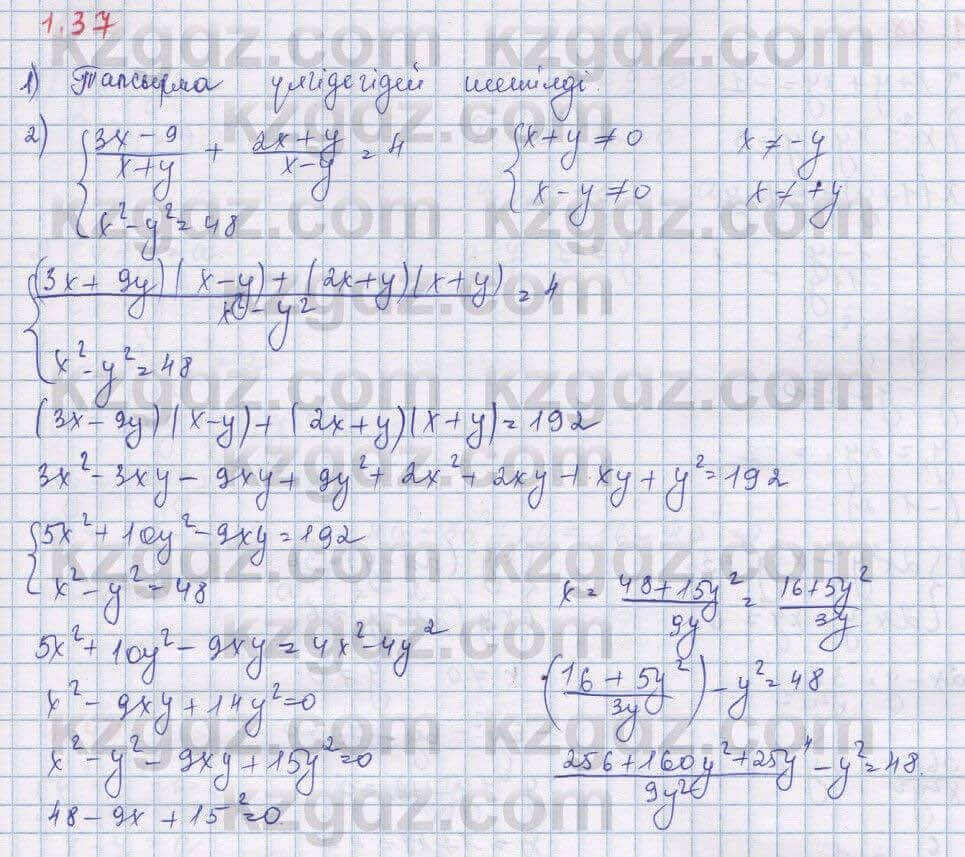 1.37
1) Тапсырма үлгідегідей шешілді.
2) { (3x - 9)/(x+y) + (2x+y)/(x-y) = 4 { x+y ≠ 0 x ≠ -y
x² - y² = 48 x - y ≠ 0 x ≠ +y
{ ((3x + 9y)(x-y) + (2x+y)(x+y))/(x² - y²) = 4
x² - y² = 48
(3x - 9y)(x-y) + (2x+y)(x+y) = 192
3x² - 3xy - 9xy + 9y² + 2x² + 2xy + xy + y² = 192
{ 5x² + 10y² - 9xy = 192
x² - y² = 48
5x² + 10y² - 9xy = 4x² - 4y²
x² - 9xy + 14y² = 0
x² - y² - 9xy + 15y² = 0
48 - 9x + 15² = 0
x = (48+15y²)/(9y) = (16+5y²)/(3y)
((16 + 5y²)/(3y)) - y² = 48
(256 + 160y² + 25y⁴)/(9y²) - y² = 48.
kzgdz.com